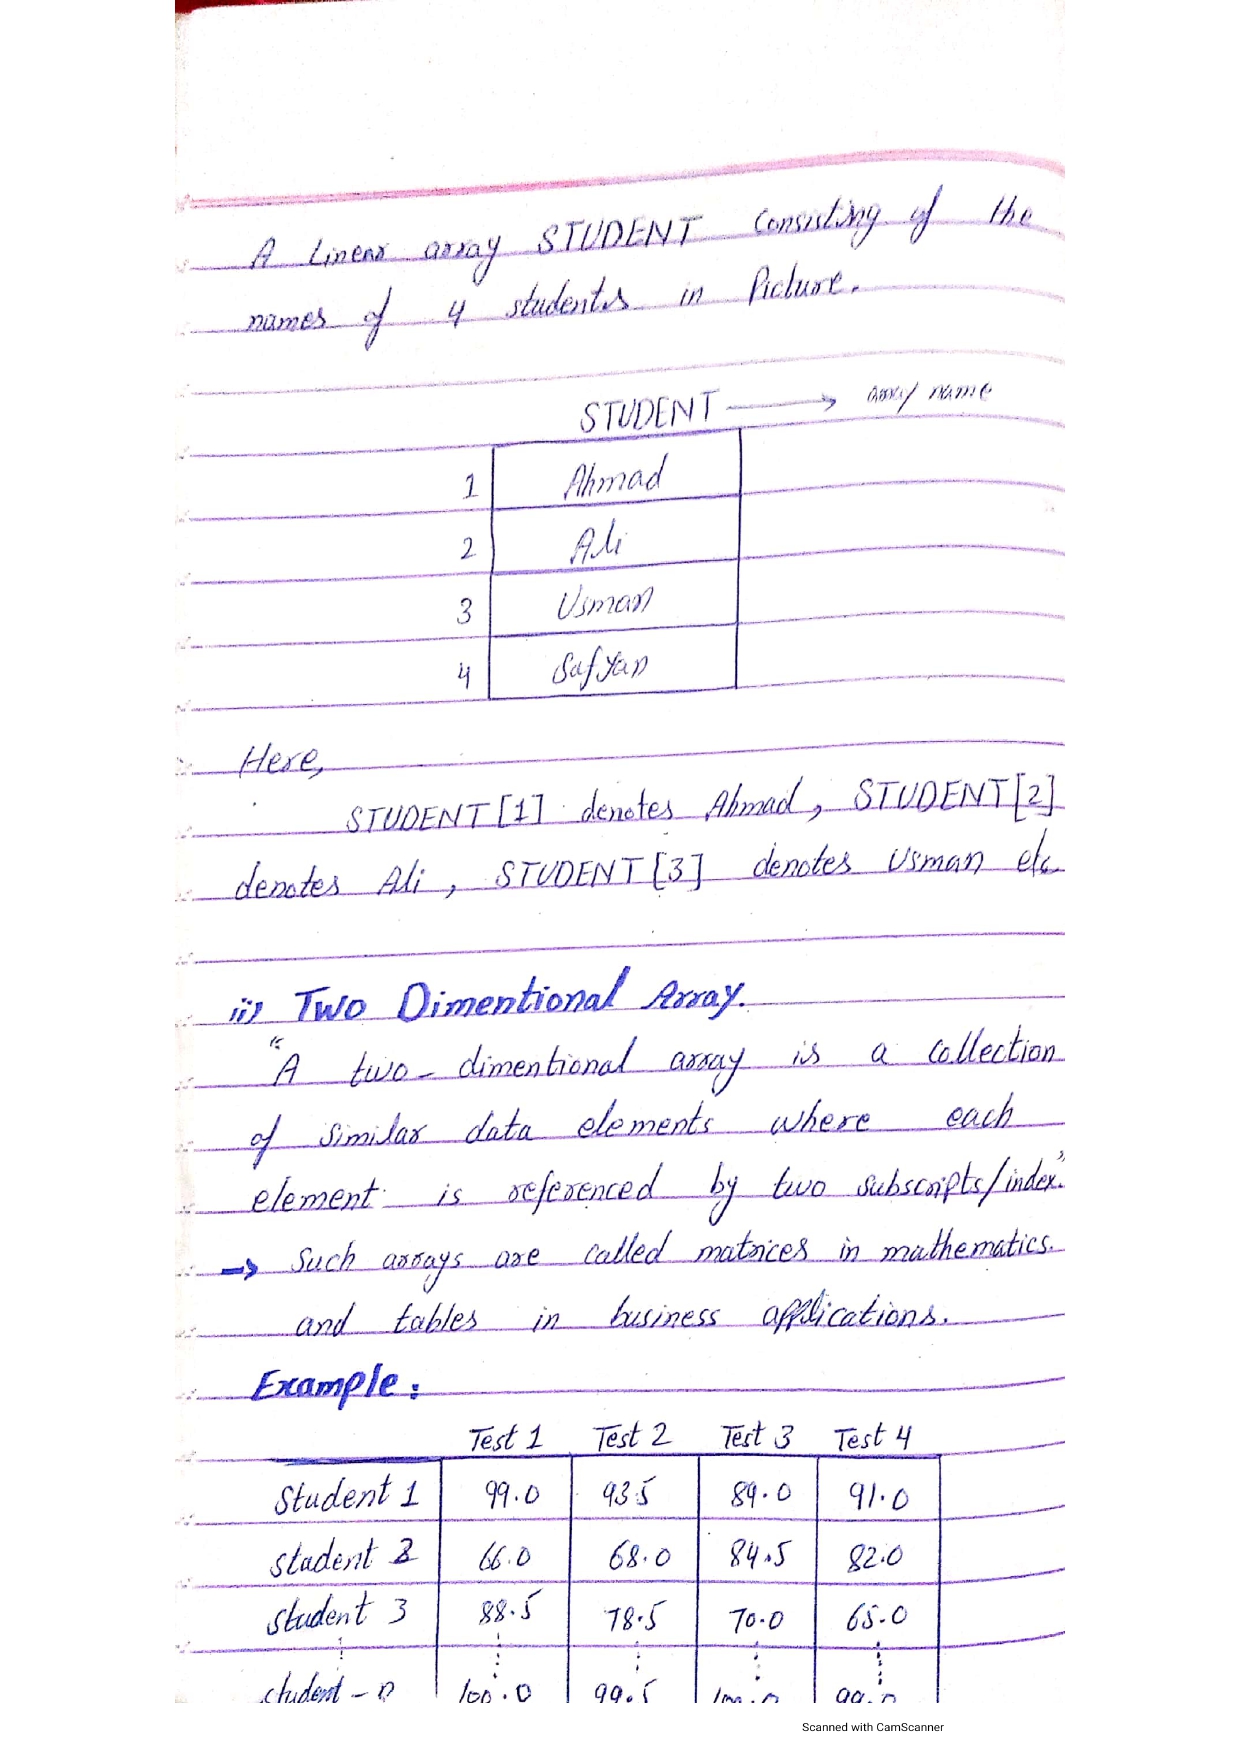 A Linear array STUDENT Consisting of the
names of 4 students in Picture.
STUDENT → array name
1 Ahmad
2 Ali
3 Usman
4 Safyan
Here,
STUDENT[1] denotes Ahmad, STUDENT[2]
denotes Ali, STUDENT[3] denotes Usman etc.
ii) Two Dimentional Array.
"A two-dimentional array is a collection
of similar data elements where each
element is referenced by two subscripts/index."
→ Such arrays are called matrices in mathematics.
and tables in business applications.
Example:
Test 1 Test 2 Test 3 Test 4
Student 1 99.0 93.5 89.0 91.0
student 2 66.0 68.0 84.5 82.0
student 3 88.5 78.5 70.0 65.0
student-n 100.0 99.5 100.0 99.0
Scanned with CamScanner